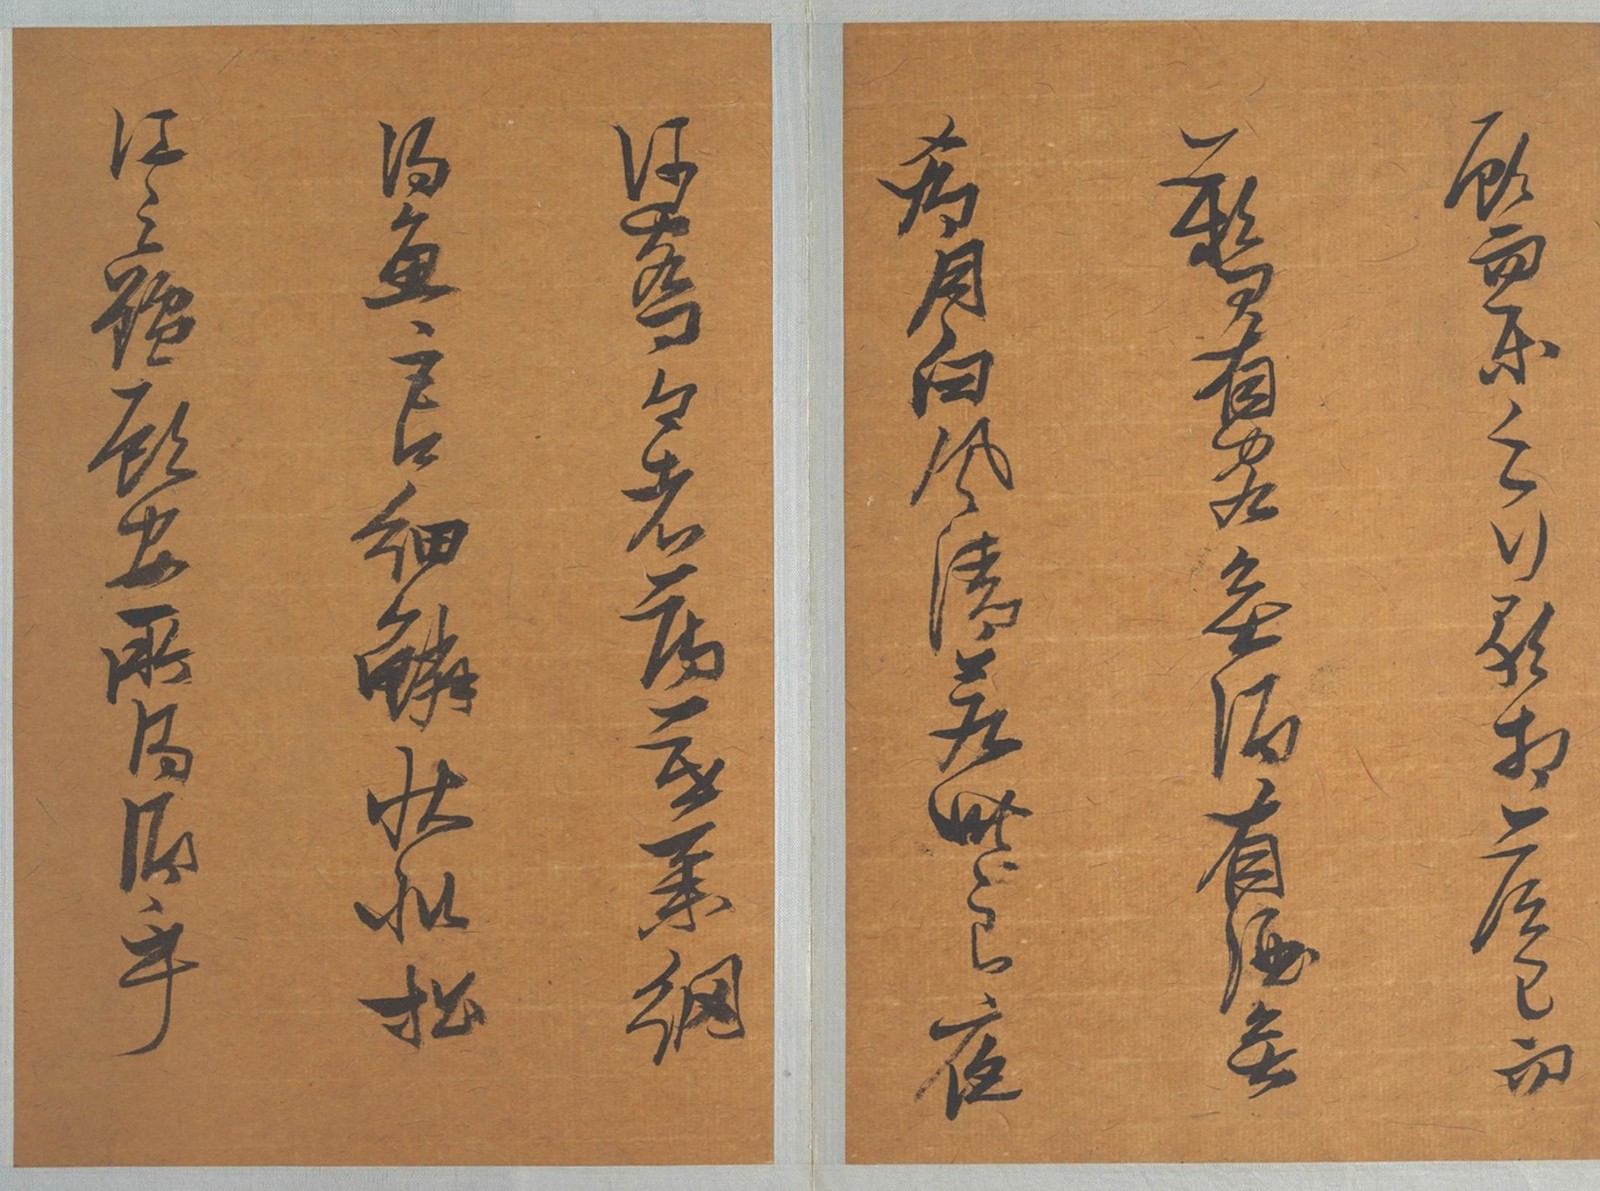 顧而樂之行歌相答已而
歎曰有客無酒有酒無
肴月白風清若此良夜
何客曰今者薄暮舉網
得魚巨口細鱗狀似松
江之鱸顧安所得酒乎